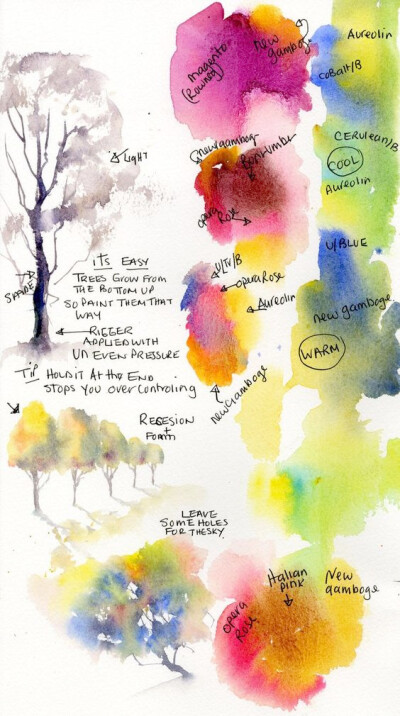 magenta
(Rowney)
new
gamboge
Aureolin
cobalt/B
LIGHT
new gamboge
opera
Rose
CERulean/B
COOL
Aureolin
ITS EASY
TREES GROW FROM
THE BOTTOM UP
SO PAINT THEM THAT
WAY
RIGGER
APPLIED WITH
UN EVEN PRESSURE
opera Rose
Aureolin
new gamboge
U/BLUE
new gamboge
WARM
TIP HOLD IT At the END
STOPS YOU OVER CONTROLING
RECESION
+
LEAVE
SOME HOLES
FOR THE SKY
OPERA
Rose
Italian
pink
New
gamboge